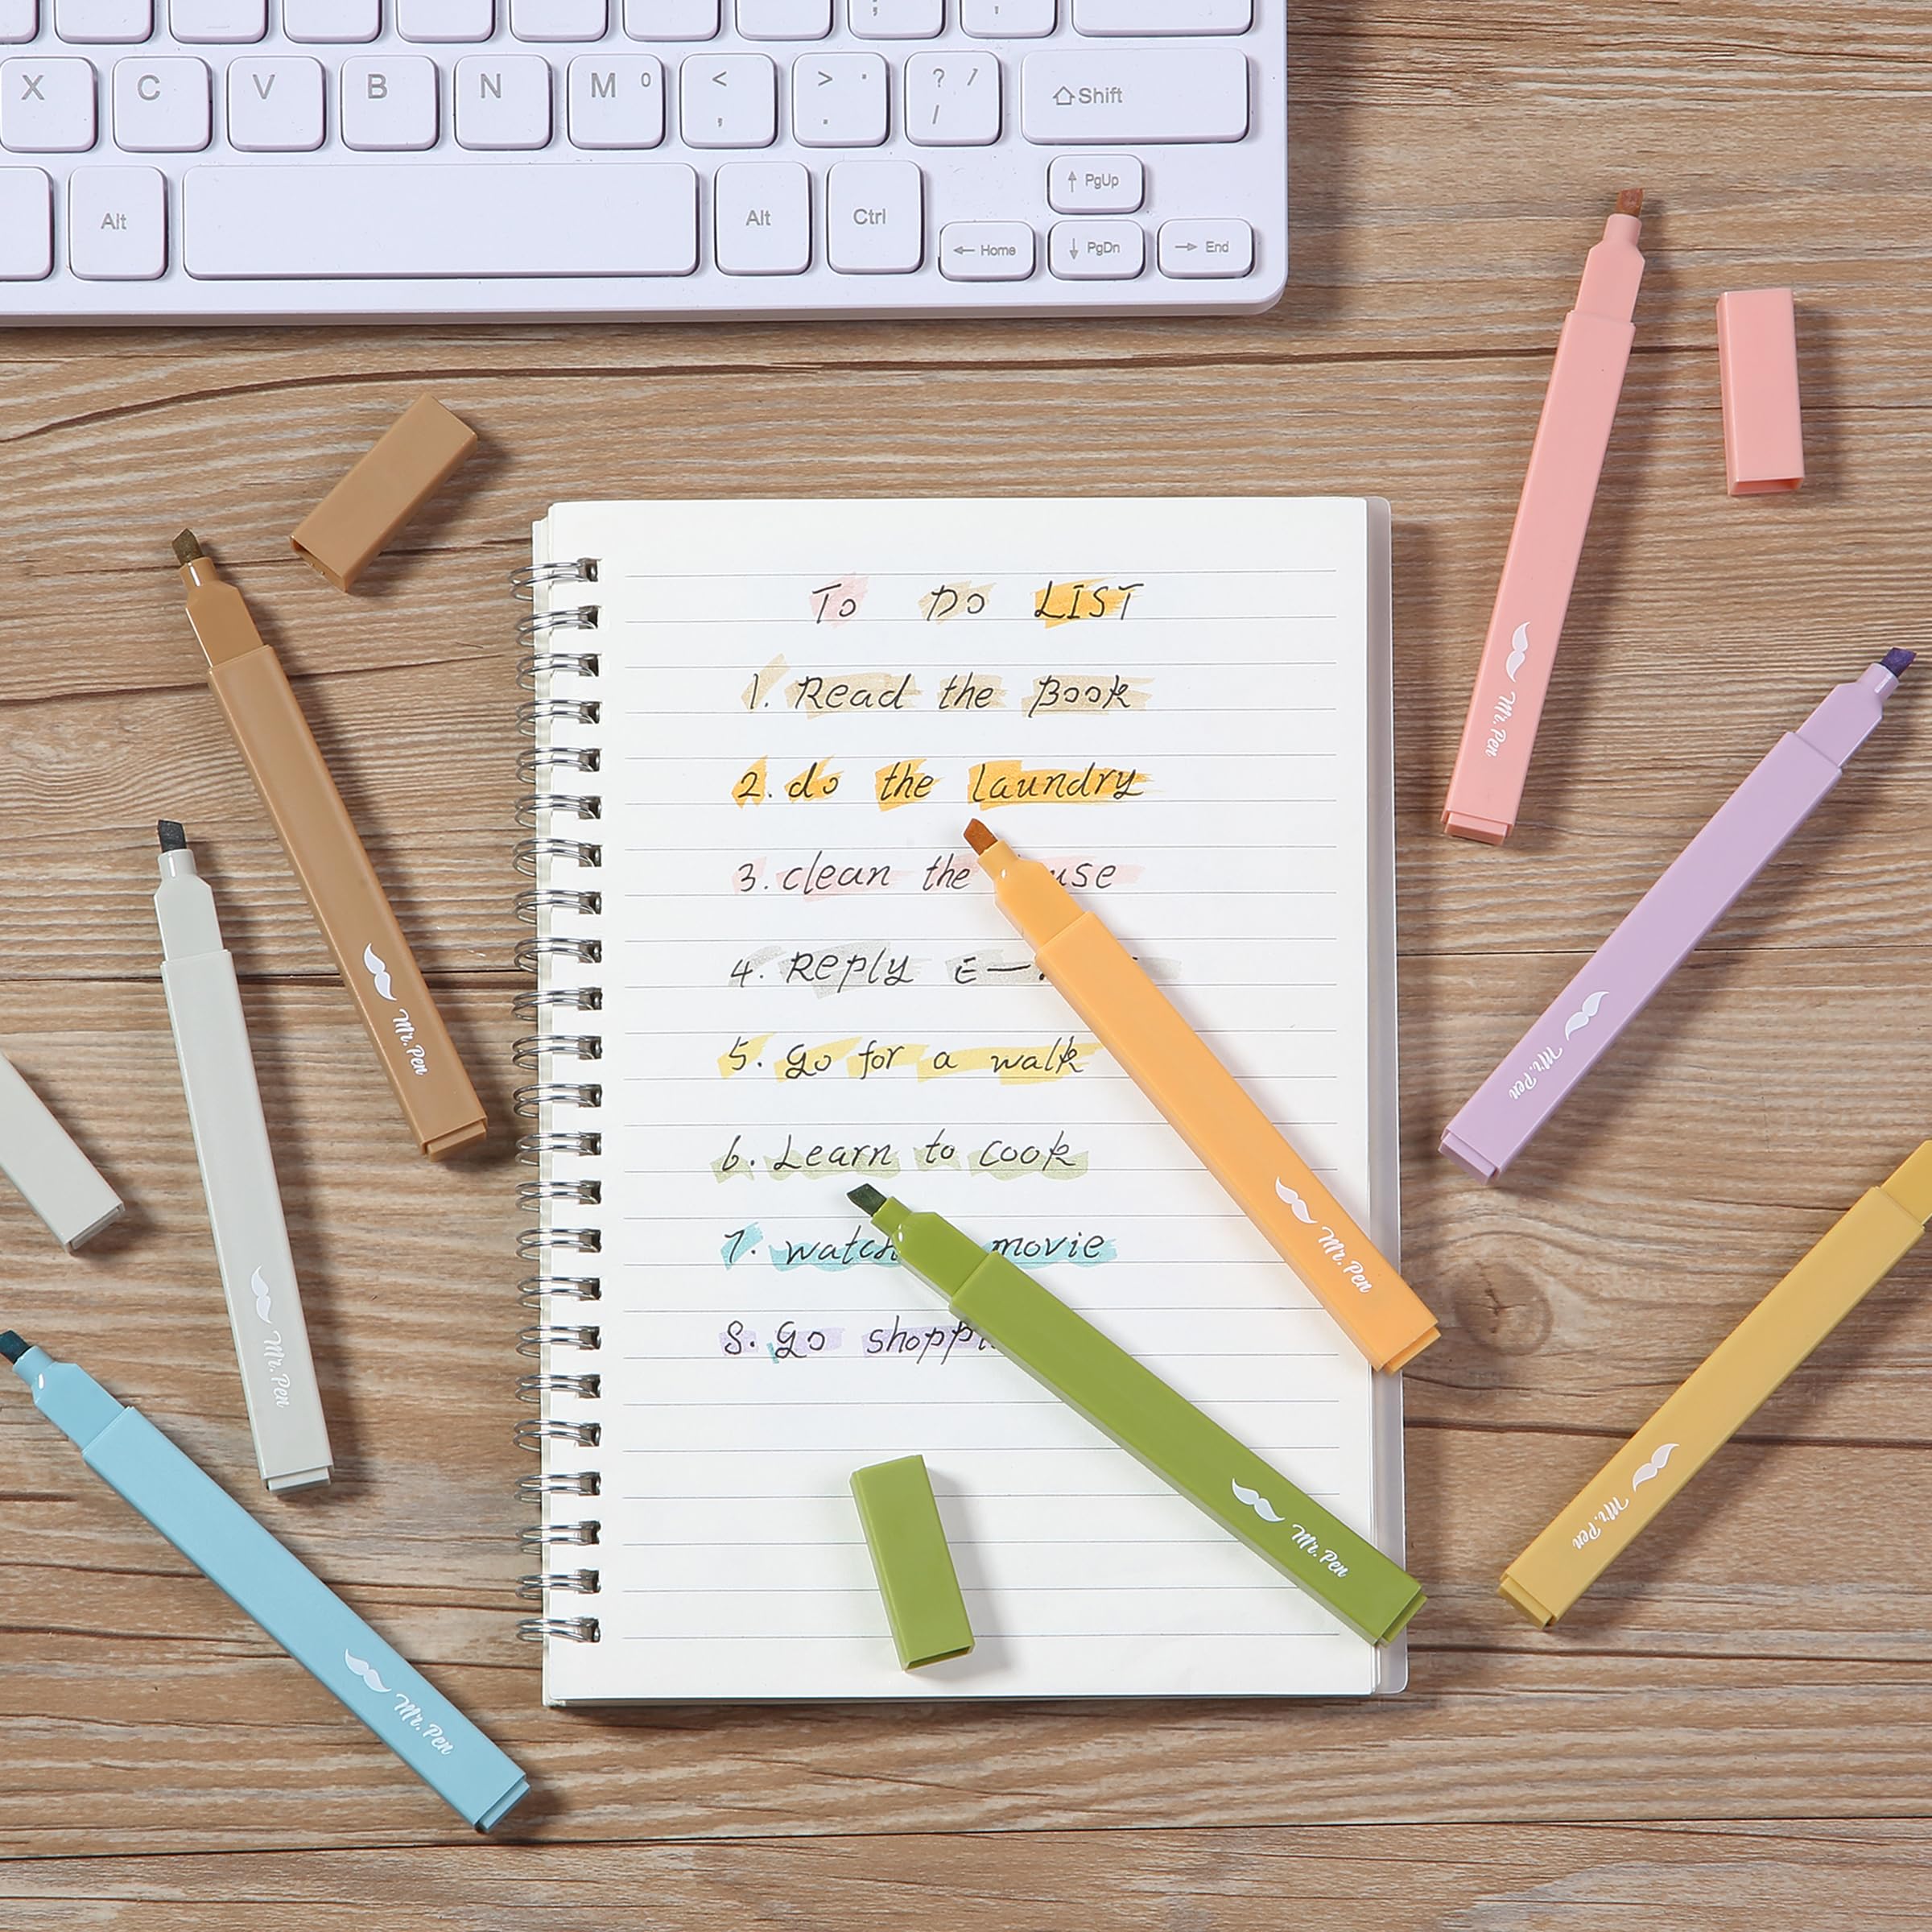 X C V B N M 0 < , > . ? / 7 / Shift
Alt Alt Ctrl PgUp
Home PgDn End
TO DO LIST
1. Read the Book
2. do the laundry
3. clean the
4. Reply
5. Go for a walk
6. Learn to cook
7. watch movie
8. Go
Mr. Pen
Mr. Pen
Mr. Pen
Mr. Pen
Mr. Pen
Mr. Pen
Mr. Pen
Mr. Pen